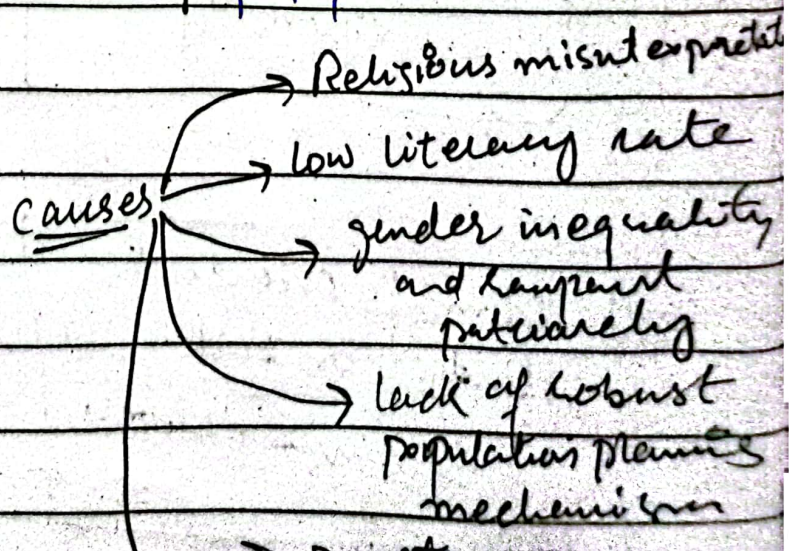 Religious misinterpretat
low literacy rate
Causes
gender inequality
and rampant
patriarchy
lack of robust
population planning
mechanism